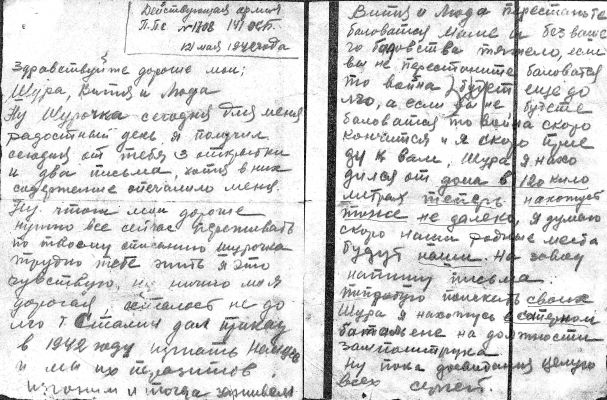 Действующая армия
П.П.С № 1708 141 ОСП
12 мая 1942 года
Здравствуйте дорогие мои;
Шура, Витя и Люда
Ну Шурочка сегодня для меня
радостный день я получил
сегодня от тебя 3 открытки
и два письма, хотя в них
содержание опечалило меня.
Ну что ж мои дорогие
нужно все сейчас переживать
по твоему описанию Шурочка
трудно тебе жить я это
чувствую, ну ничего моя
дорогая осталось не до
лго т. Сталин дал приказ
в 1942 году изгнать немцев
и мы их паразитов
изгоним и тогда заживем
Витя и Люда перестаньте
баловатся маме и без ваше
го баловства тяжело, если
вы не перестаните баловатся
то война будет еще до
лго, а если вы не будете
баловатся то война скоро
кончится и я скоро прие
ду к вам, Шура я нахо
дился от дома в 120 кило
метрах теперь нахожусь
тоже не далеко, я думаю
скоро наши родные места
будут наши. На завод
напишу письма
попробую поискать своих
Шура я нахожусь в
батальене на должности
зам политрука
Ну пока досвидания целую
всех Сергей.